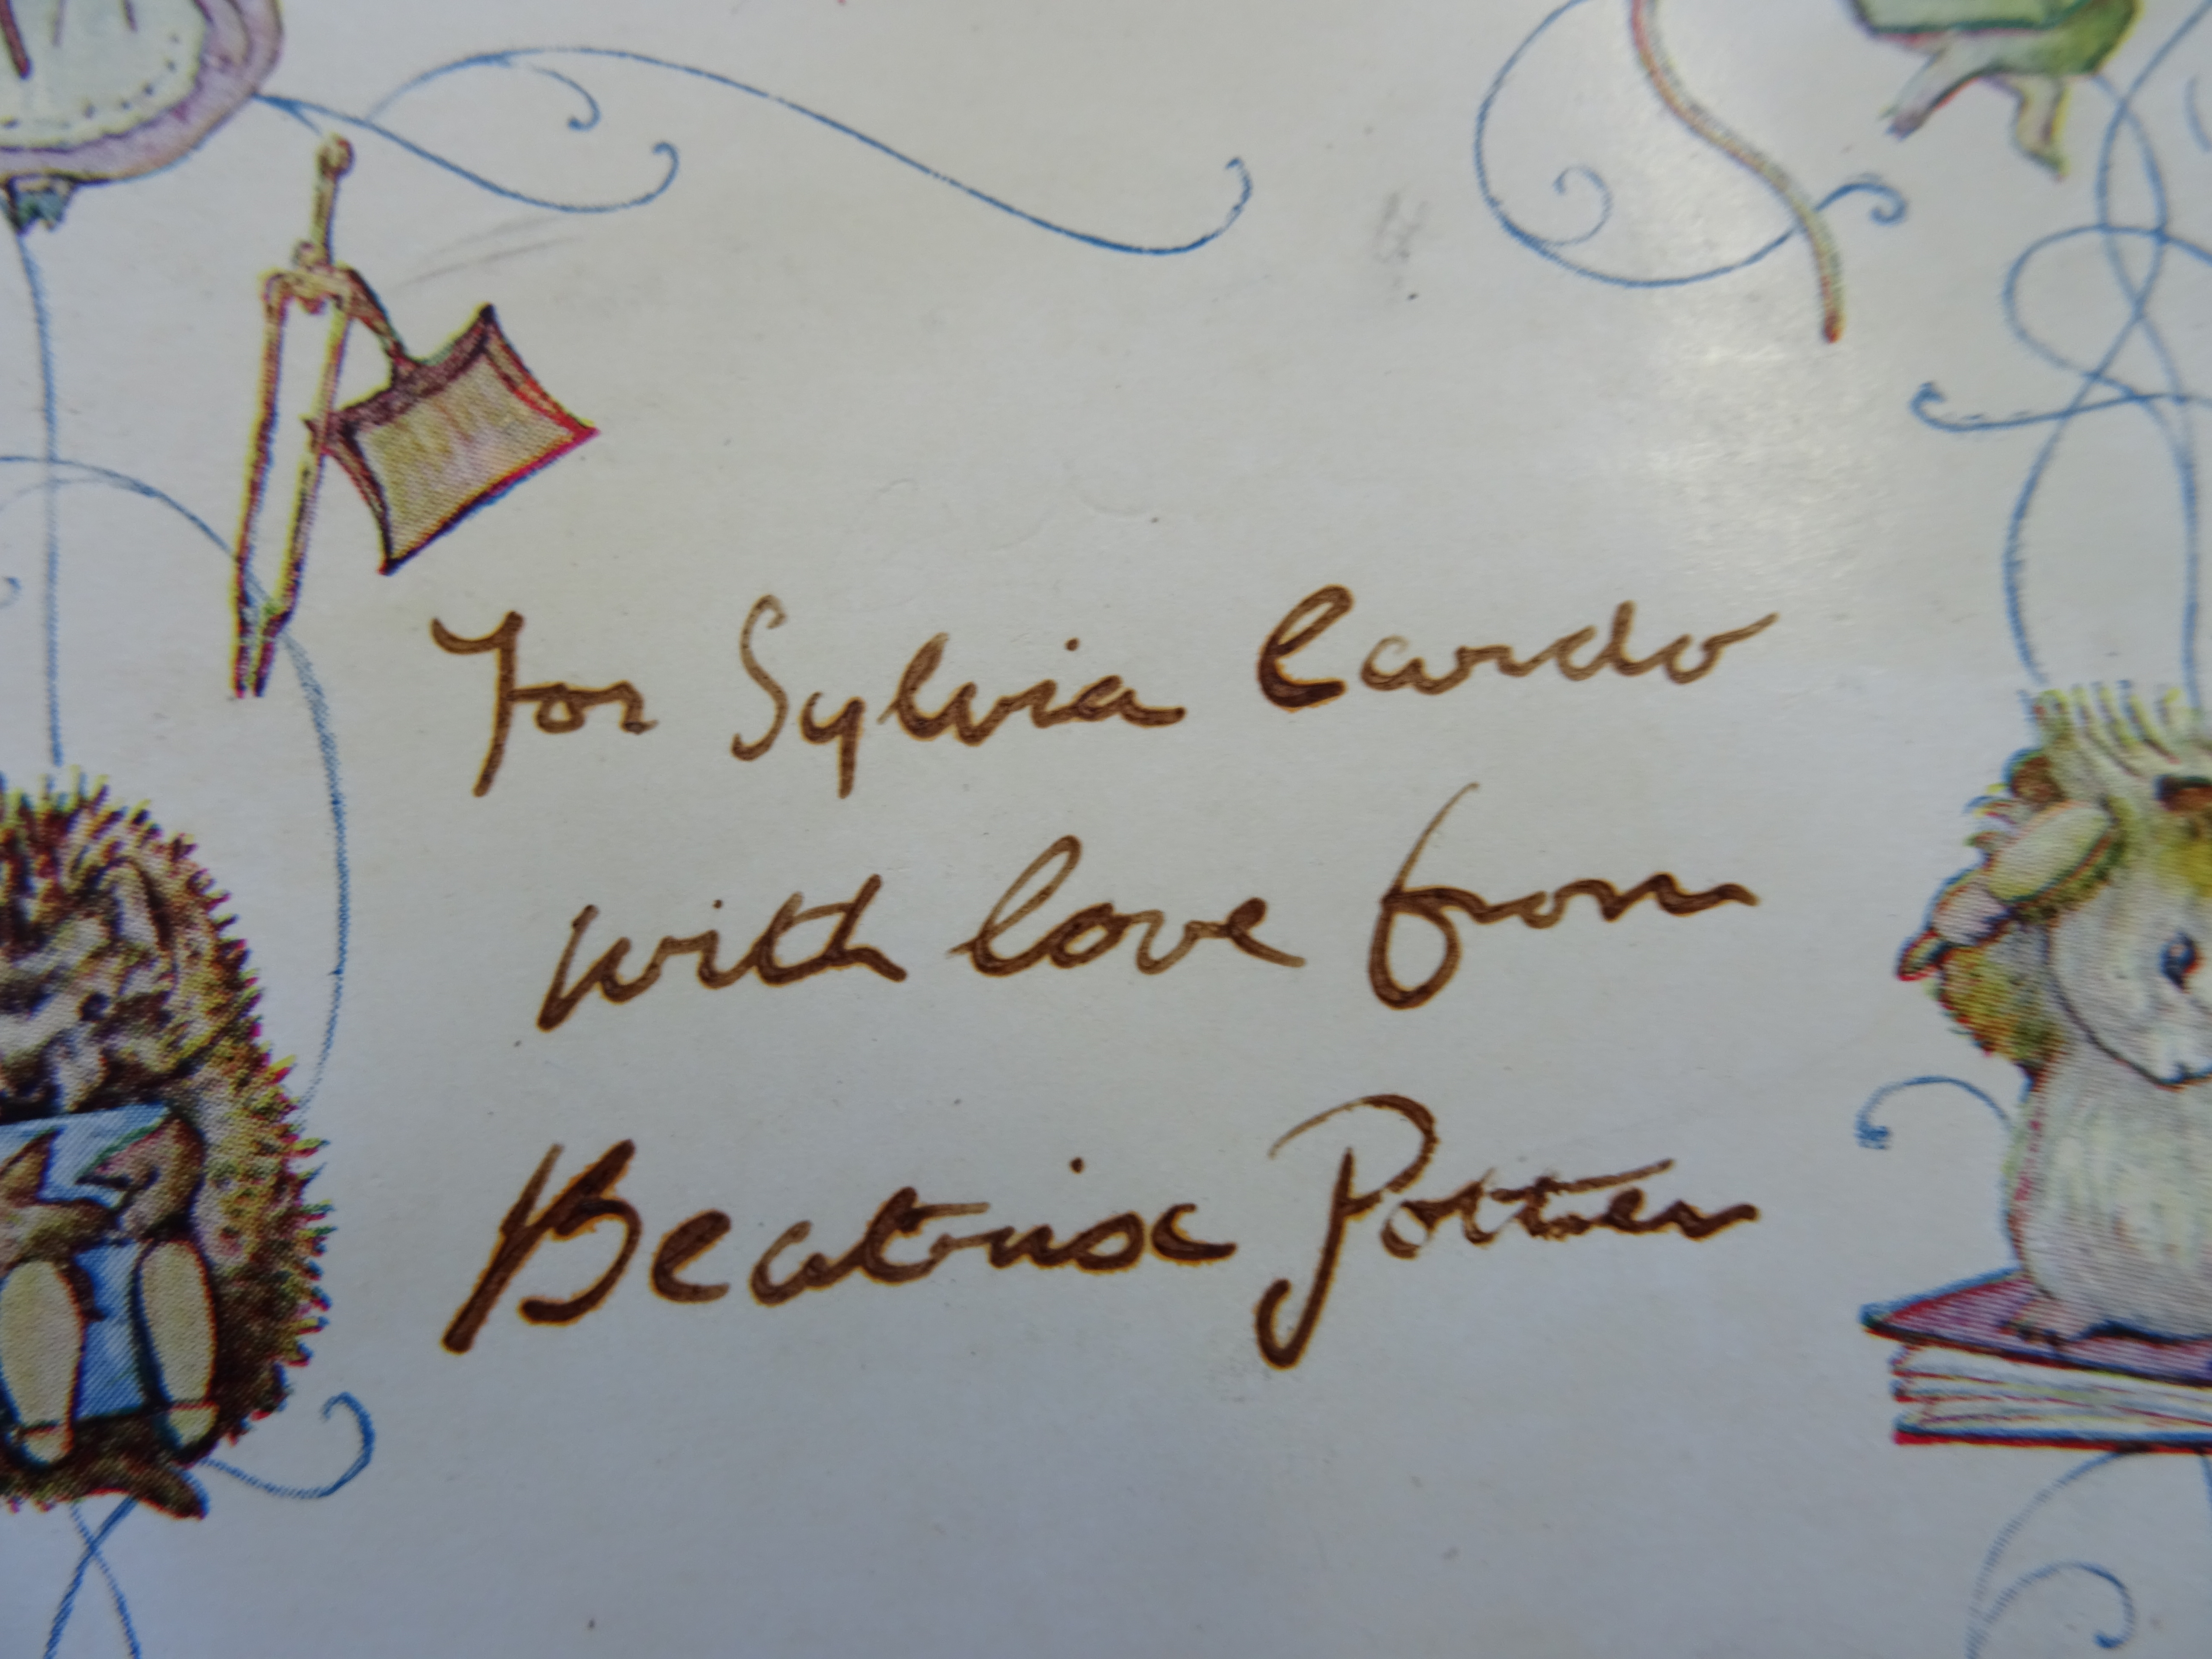 For Sylvia Cardo
with love from
Beatrix Potter